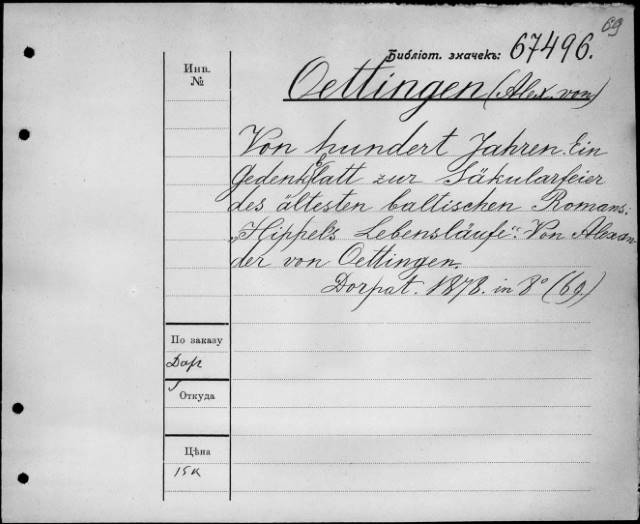 69
Библіот. значекъ: 67496.
Инв.
№
Oettingen (Alex. von)
Von hundert Jahren. Ein
Gedenkblatt zur Säkularfeier
des ältesten baltischen Romans:
„Hippel's Lebensläufe“. Von Alexan-
der von Oettingen.
Dorpat. 1878. in 8° (69.)
По заказу
Дар
Откуда
Цѣна
15к